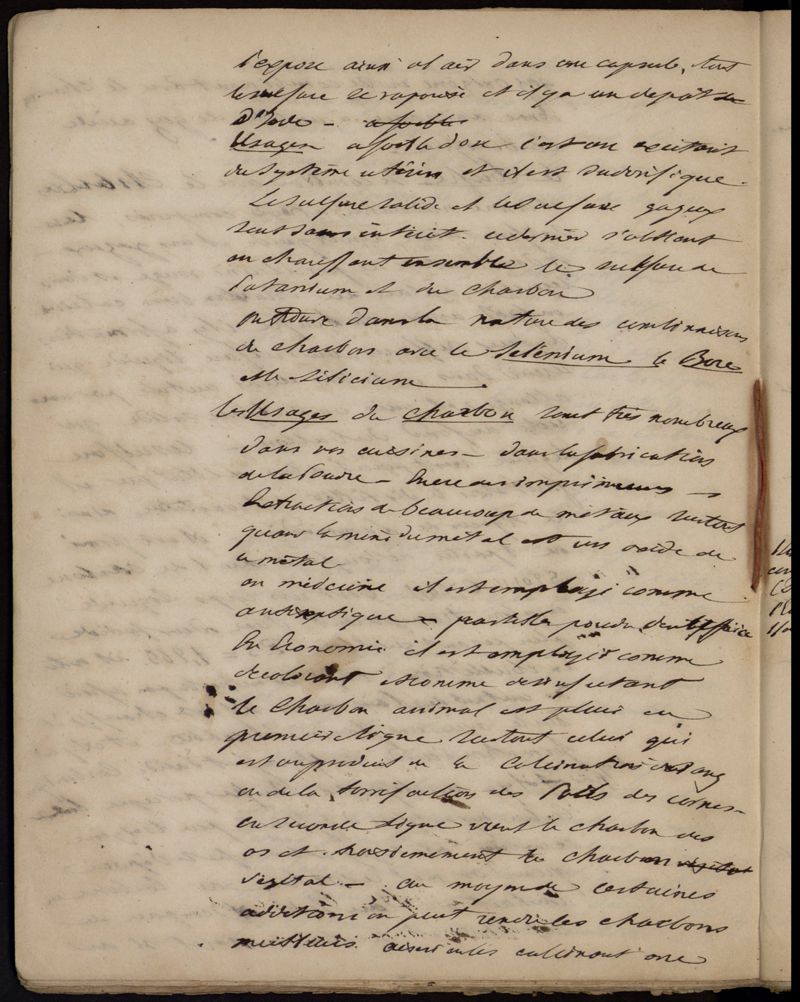 l'expose ainsi al air dans une capsule, tout
le sulfure se vaporise et il y a un depôt de
D'iode - a faible
Usages a faible dose c'est un excitant
du Système utérin et il est sudorifique.
Le sulfure solide et le sulfure gazeux
sont sans intérêt. ce dernier s'obtient
en chauffant ensemble le sulfure de
et du charbon
on trouve dans la nature des combinaisons
de charbon avec le Sélénium le Bore
et le silicium.
les Usages du charbon sont très nombreux
dans nos cuisines - dans la fabrication
de la Poudre - Encre des imprimeurs -
Extraction de beaucoup de métaux surtout
quand la mine du métal est un oxide de
ce métal
en médecine il est employé comme
antiseptique - pastilles poudre dentifrice
En Economie il est employé comme
décolorant et comme désinfectant
le Charbon animal est placé en
première ligne surtout celui qui
est au produit de la Calcination du sang
ou de la torréfaction des Poils des cornes -
en seconde Ligne vient le charbon des
os et troisièmement le charbon végétal
végétal - au moyen de certaines
additions on peut rendre les charbons
meilleurs ainsi en les calcinant une